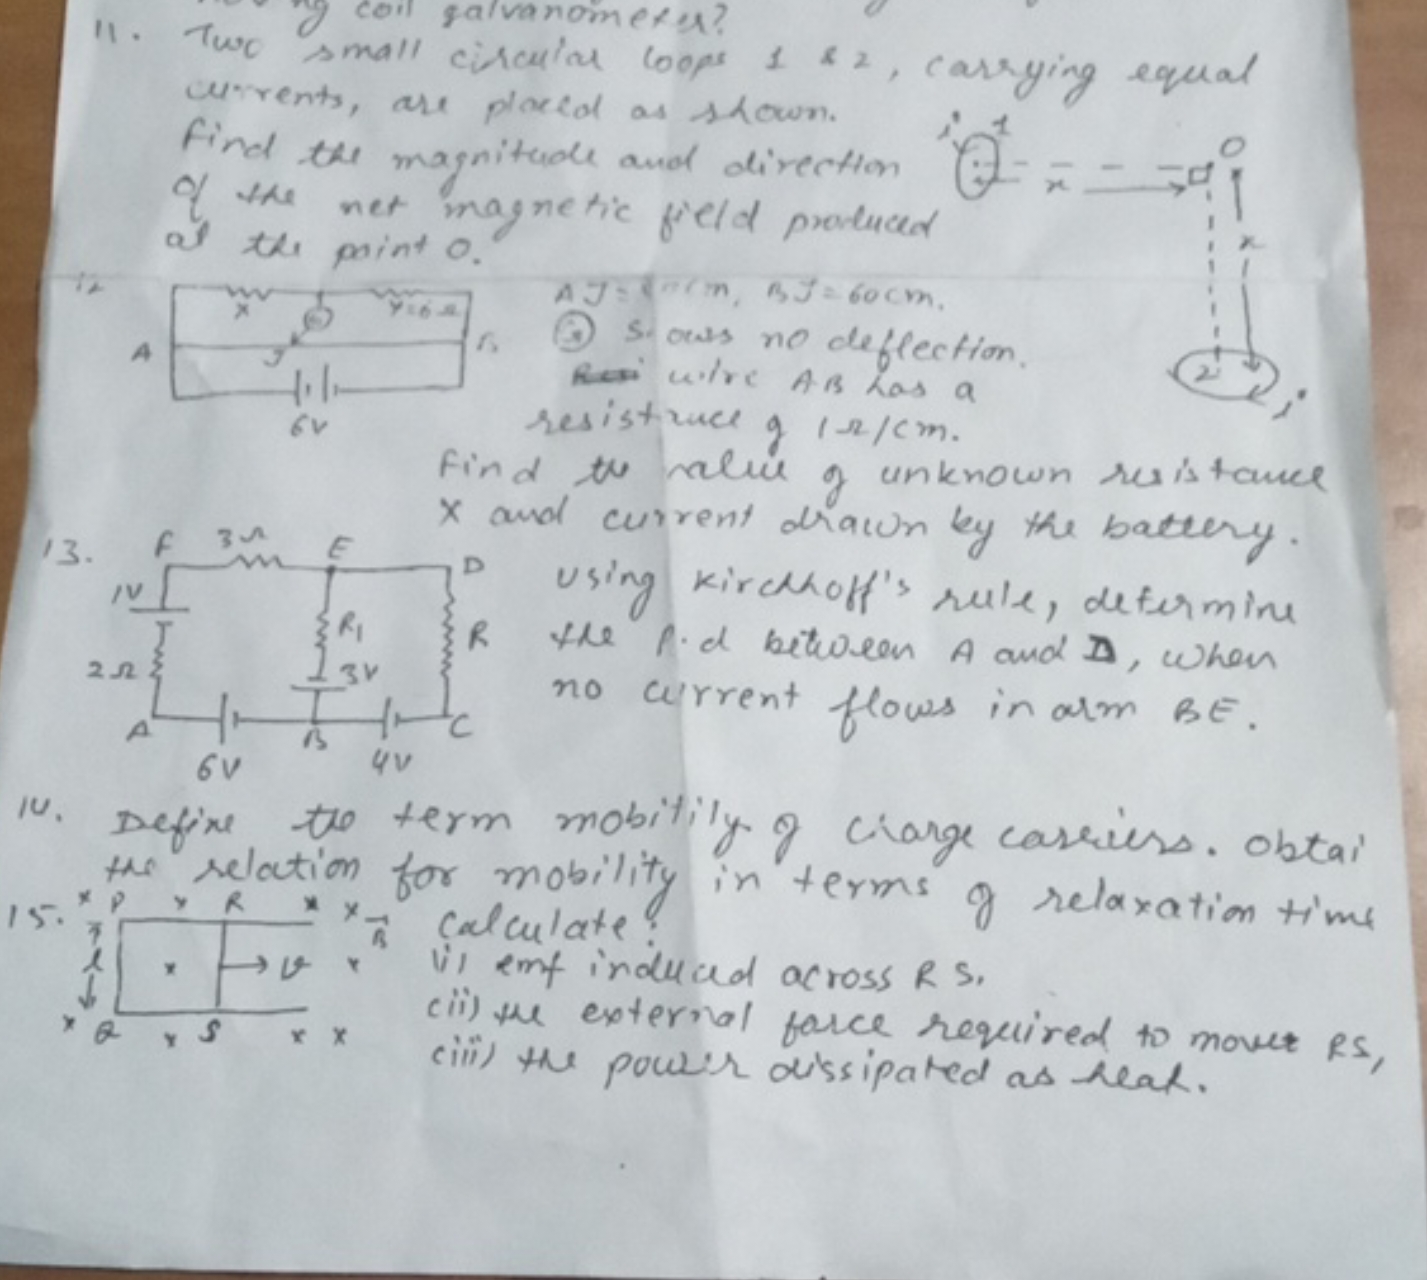 coil galvanometer?
11. Two small circular loops 1 & 2, carrying equal
currents, are placed as shown.
Find the magnitude and direction
of the net magnetic field produced
at the point O.
i 1
x
O
x
2
i
12
X
Y=6Ω
G
A
J
B
6V
AJ = cm, BJ = 60cm.
G Shows no deflection.
wire AB has a
resistance of 1Ω/cm.
Find the value of unknown resistance
X and current drawn by the battery.
13.
F 3Ω E D
1V
R1 R
2Ω 3V
A B C
6V 4V
Using Kirchhoff's rule, determine
the p.d between A and D, when
no current flows in arm BE.
14. Define the term mobitily of charge carriers. Obtai
the relation for mobility in terms of relaxation time
15. x P x R x x B
l x v x
x Q x S x x
Calculate:
(i) emf induced across RS.
(ii) the external force required to move RS,
(iii) the power dissipated as heat.